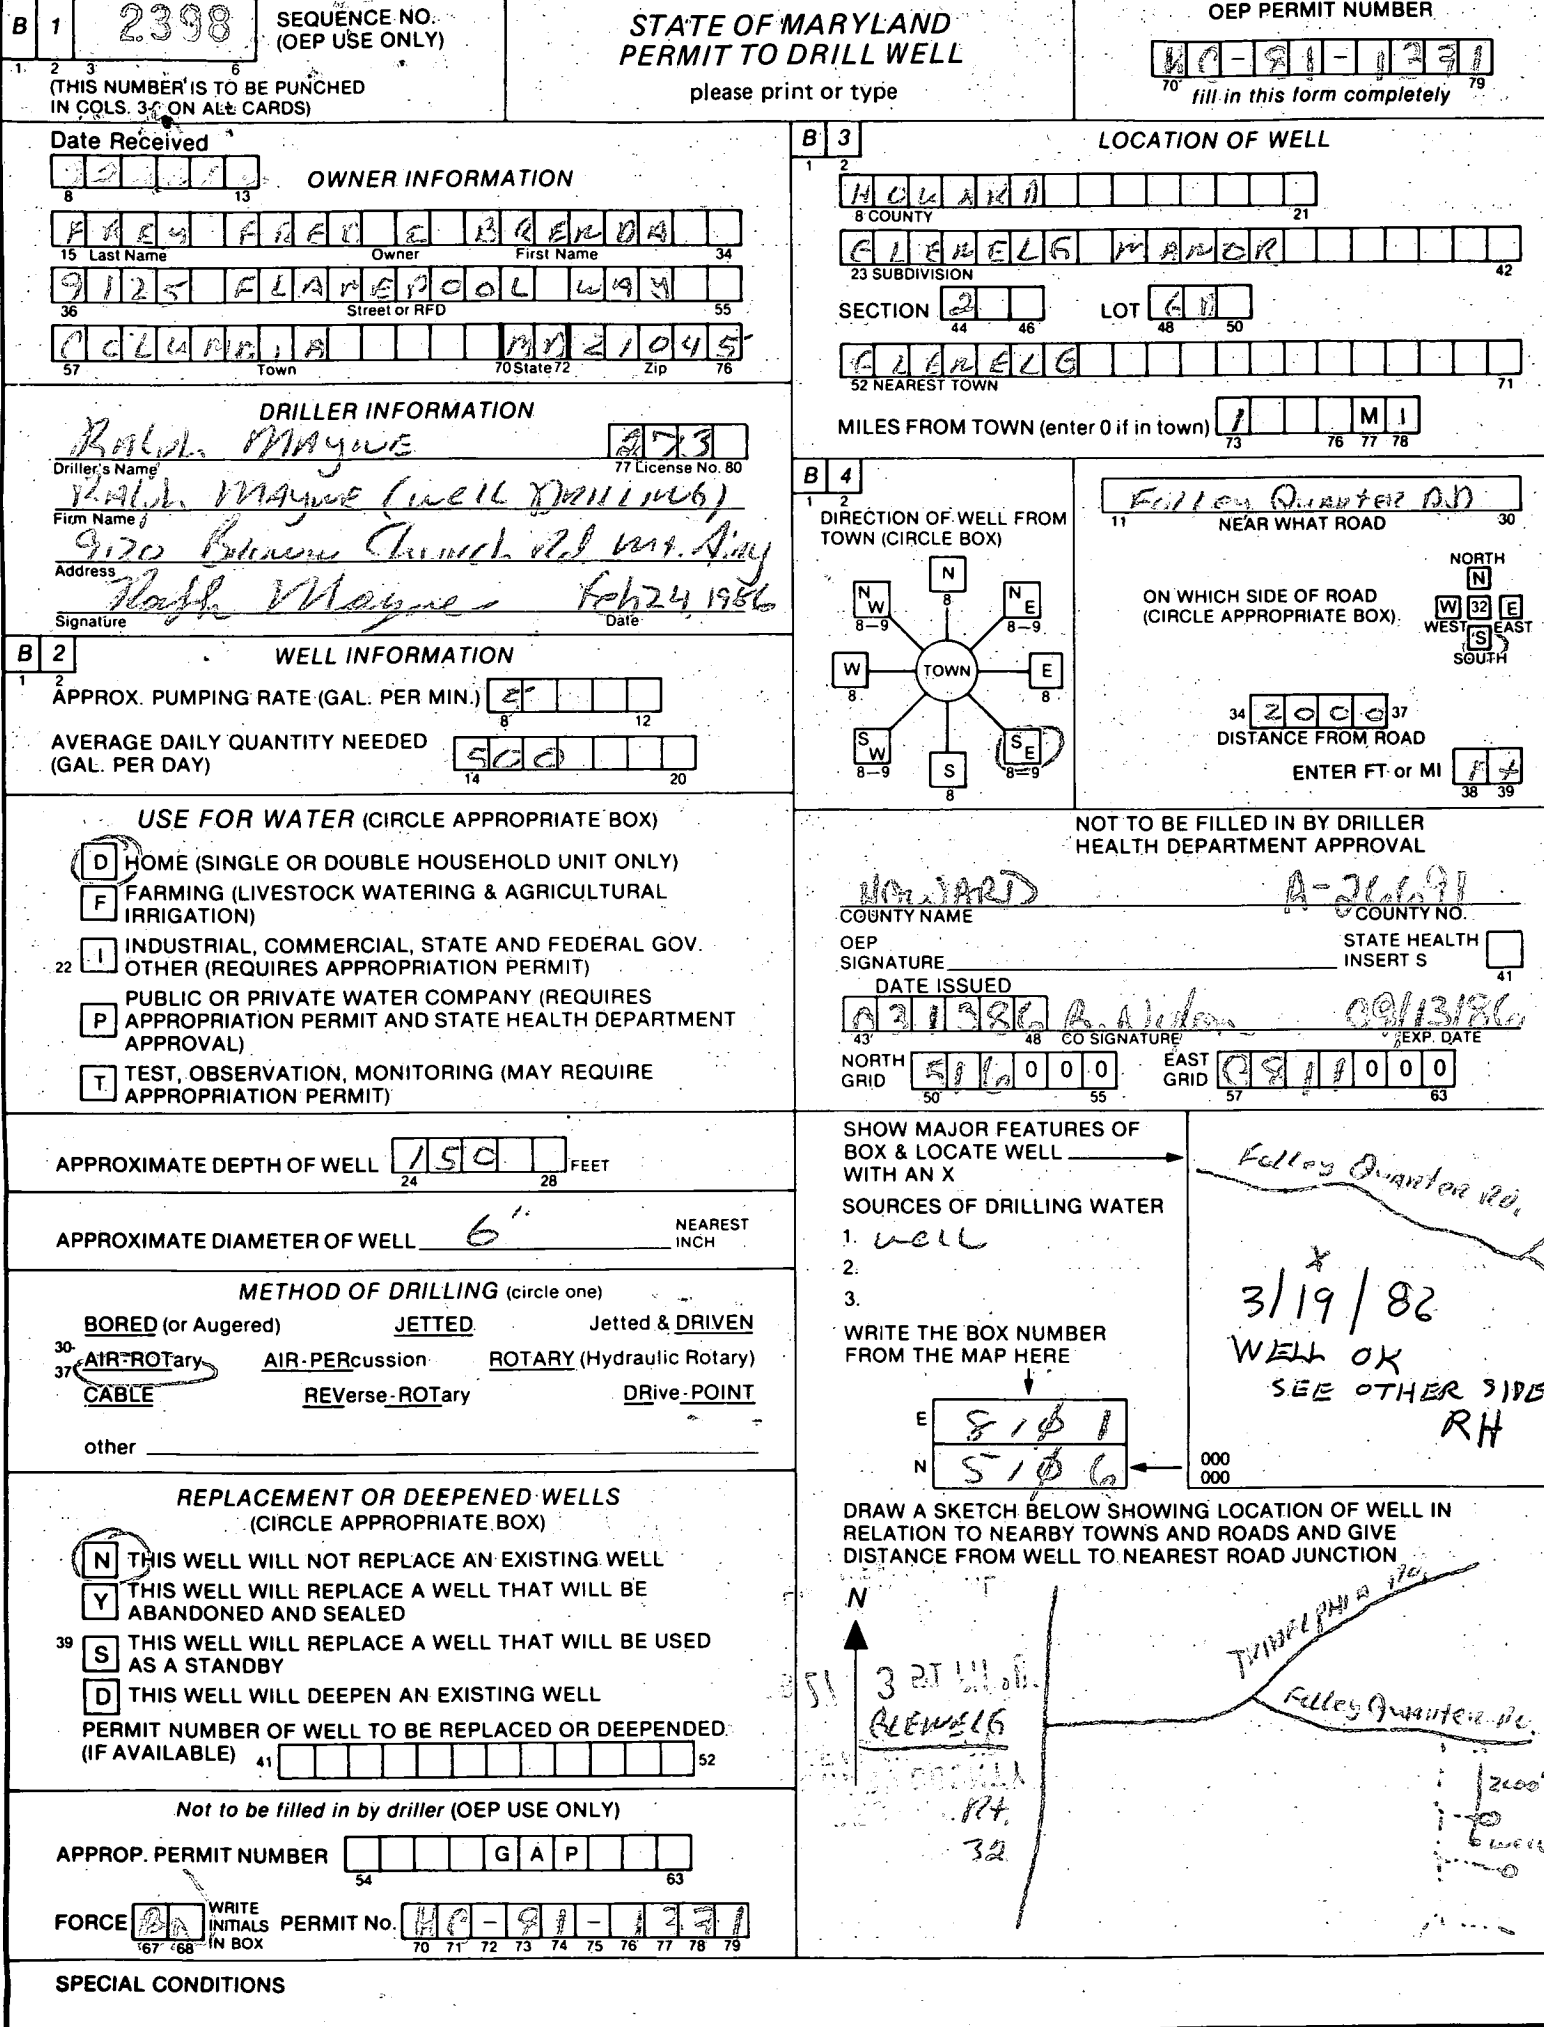 B 1 2398 SEQUENCE NO.
(OEP USE ONLY)
1 2 3 6
(THIS NUMBER IS TO BE PUNCHED
IN COLS. 3-6 ON ALL CARDS)
STATE OF MARYLAND
PERMIT TO DRILL WELL
please print or type
OEP PERMIT NUMBER
70 79
fill in this form completely
Date Received
8 13
OWNER INFORMATION
FREY FRED & BRENDA
15 Last Name Owner First Name 34
9125 FLAMEPOOL WAY
36 Street or RFD 55
COLUMBIA MD 21045
57 Town 70 State 72 Zip 76
DRILLER INFORMATION
Ralph MAYNE 273
Driller's Name 77 License No. 80
Ralph MAYNE (Well DRILLING)
Firm Name
9120 Church Rd Mt. Airy
Address
Ralph Mayne Feb 24 1986
Signature Date
B 2 WELL INFORMATION
1 2
APPROX. PUMPING RATE (GAL. PER MIN.)
8 12
AVERAGE DAILY QUANTITY NEEDED
(GAL. PER DAY) 500
14 20
USE FOR WATER (CIRCLE APPROPRIATE BOX)
D HOME (SINGLE OR DOUBLE HOUSEHOLD UNIT ONLY)
F FARMING (LIVESTOCK WATERING & AGRICULTURAL
IRRIGATION)
22 I INDUSTRIAL, COMMERCIAL, STATE AND FEDERAL GOV.
OTHER (REQUIRES APPROPRIATION PERMIT)
P PUBLIC OR PRIVATE WATER COMPANY (REQUIRES
APPROPRIATION PERMIT AND STATE HEALTH DEPARTMENT
APPROVAL)
T TEST, OBSERVATION, MONITORING (MAY REQUIRE
APPROPRIATION PERMIT)
APPROXIMATE DEPTH OF WELL 150 FEET
24 28
APPROXIMATE DIAMETER OF WELL 6" NEAREST
INCH
METHOD OF DRILLING (circle one)
BORED (or Augered) JETTED Jetted & DRIVEN
30-
37 AIR-ROTary AIR-PERcussion ROTARY (Hydraulic Rotary)
CABLE REVerse-ROTary DRive-POINT
other
REPLACEMENT OR DEEPENED WELLS
(CIRCLE APPROPRIATE BOX)
N THIS WELL WILL NOT REPLACE AN EXISTING WELL
Y THIS WELL WILL REPLACE A WELL THAT WILL BE
ABANDONED AND SEALED
39 S THIS WELL WILL REPLACE A WELL THAT WILL BE USED
AS A STANDBY
D THIS WELL WILL DEEPEN AN EXISTING WELL
PERMIT NUMBER OF WELL TO BE REPLACED OR DEEPENDED
(IF AVAILABLE) 41 52
Not to be filled in by driller (OEP USE ONLY)
APPROP. PERMIT NUMBER G A P
54 63
FORCE WRITE
INITIALS
IN BOX PERMIT No.
67 68 70 71 72 73 74 75 76 77 78 79
SPECIAL CONDITIONS
B 3 LOCATION OF WELL
1 2
HOWARD
8 COUNTY 21
GLENELG MANOR
23 SUBDIVISION 42
SECTION 2 LOT
44 46 48 50
GLENELG
52 NEAREST TOWN 71
MILES FROM TOWN (enter 0 if in town) 1 M I
73 76 77 78
B 4
1 2
DIRECTION OF WELL FROM
TOWN (CIRCLE BOX)
N 8
NW 8-9
NE 8-9
W 8
TOWN
E 8
SW 8-9
S 8
SE 8-9
Folley Quarter RD
11 NEAR WHAT ROAD 30
ON WHICH SIDE OF ROAD
(CIRCLE APPROPRIATE BOX)
NORTH
N
W 32 E
WEST EAST
S
SOUTH
34 2000 37
DISTANCE FROM ROAD
ENTER FT or MI Ft
38 39
NOT TO BE FILLED IN BY DRILLER
HEALTH DEPARTMENT APPROVAL
HOWARD A-26691
COUNTY NAME COUNTY NO.
OEP
SIGNATURE
STATE HEALTH
INSERT S
41
DATE ISSUED
031386 09/13/86
43 48 CO SIGNATURE EXP. DATE
NORTH
GRID 516 0 0 0 EAST
GRID 0811 0 0 0
50 55 57 63
SHOW MAJOR FEATURES OF
BOX & LOCATE WELL
WITH AN X
SOURCES OF DRILLING WATER
1. well
2.
3.
WRITE THE BOX NUMBER
FROM THE MAP HERE
E
N
000
000
Folley Quarter Rd.
X
3/19/86
WELL OK
SEE OTHER SIDE
RH
DRAW A SKETCH BELOW SHOWING LOCATION OF WELL IN
RELATION TO NEARBY TOWNS AND ROADS AND GIVE
DISTANCE FROM WELL TO NEAREST ROAD JUNCTION
N
GLENELG
Rt.
32
TRIADELPHIA Rd.
Folley Quarter Rd.
2000'
well